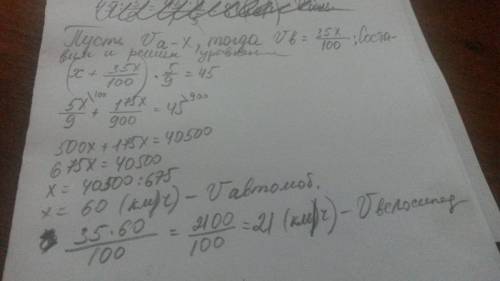 Пусть Vа - x, тогда Vв = 35x/100; Соста-
вим и решим уравнение
(x + 35x/100) · 5/9 = 45
5x/9 \100 + 175x/900 = 45 \900
500x + 175x = 40500
675x = 40500
x = 40500 : 675
x = 60 (км/ч) - Vавтомоб.
35·60/100 = 2100/100 = 21 (км/ч) - Vвелосипед